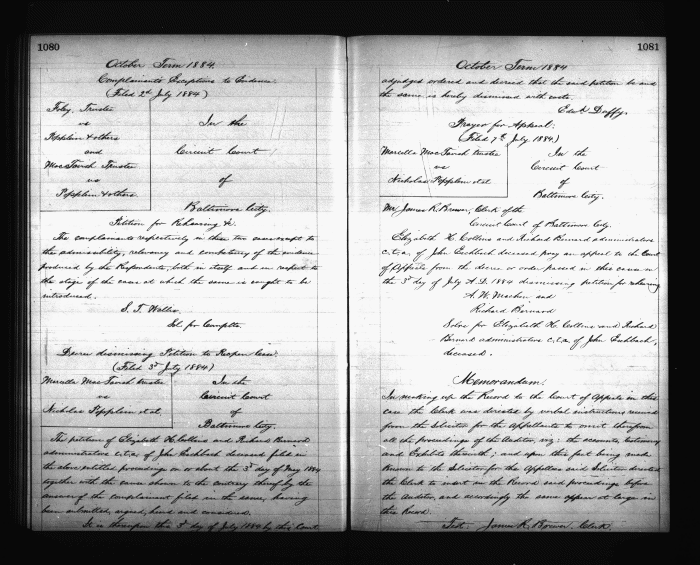 1080
October Term 1884.
Complainants Exceptions to Evidence.
(Filed 2d July 1884)
Foley, Trustee
vs
Popplein & others
and
MacTavish Trustee
vs
Popplein & others
In the
Circuit Court
of
Baltimore City.
Petition for Rehearing &c.
The complainants respectively in these two cases except to
the admissibility, relevancy and competency of the evidence
produced by the Respondents, both in itself and in respect to
the stage of the case at which the same is sought to be
introduced.
S. T. Wallis.
Sol. for Complts.
Decree dismissing Petition to Reopen Case.
(Filed 3d July 1884)
Marcella MacTavish trustee
vs
Nicholas Popplein et al.
In the
Circuit Court
of
Baltimore City.
The petition of Elizabeth H. Collins and Richard Bernard
administrators c.t.a. of John deceased filed in
the above entitled proceedings on or about the 3d day of May 1884
together with the cause shown to the contrary thereof by the
answer of the complainant filed in the same, having
been submitted, argued, heard and considered.
It is thereupon this 3d day of July 1884 by this Court
1081
October Term 1884
adjudged ordered and decreed that the said petition be and
the same is hereby dismissed with costs.
Edwd. Duffy.
Prayer for Appeal.
(Filed 7th July 1884.)
Marcella MacTavish trustee
vs
Nicholas Popplein et al
In the
Circuit Court
of
Baltimore City.
Mr James R. Brewer, Clerk of the
Circuit Court of Baltimore City.
Elizabeth H. Collins and Richard Bernard administrators
c.t.a. of John deceased pray an appeal to the Court
of Appeals from the decree or order passed in this cause on
the 3d day of July A.D. 1884 dismissing petition for rehearing
A. W. Machen and
Richard Bernard
Solrs for Elizabeth H. Collins and Richard
Bernard administrators c.t.a. of John
deceased.
Memorandum.
In making up the Record to the Court of Appeals in this
case the Clerk was directed by verbal instructions received
from the Solicitor for the Appellants to omit therefrom
all the proceedings of the Auditor, viz: the accounts, testimony
and Exhibits therewith; and upon this fact being made
known to the Solicitor for the Appellees said Solicitor directed
the Clerk to insert in the Record said proceedings before
the Auditor, and accordingly the same appear at large in
this Record.
Test: James R. Brewer, Clerk